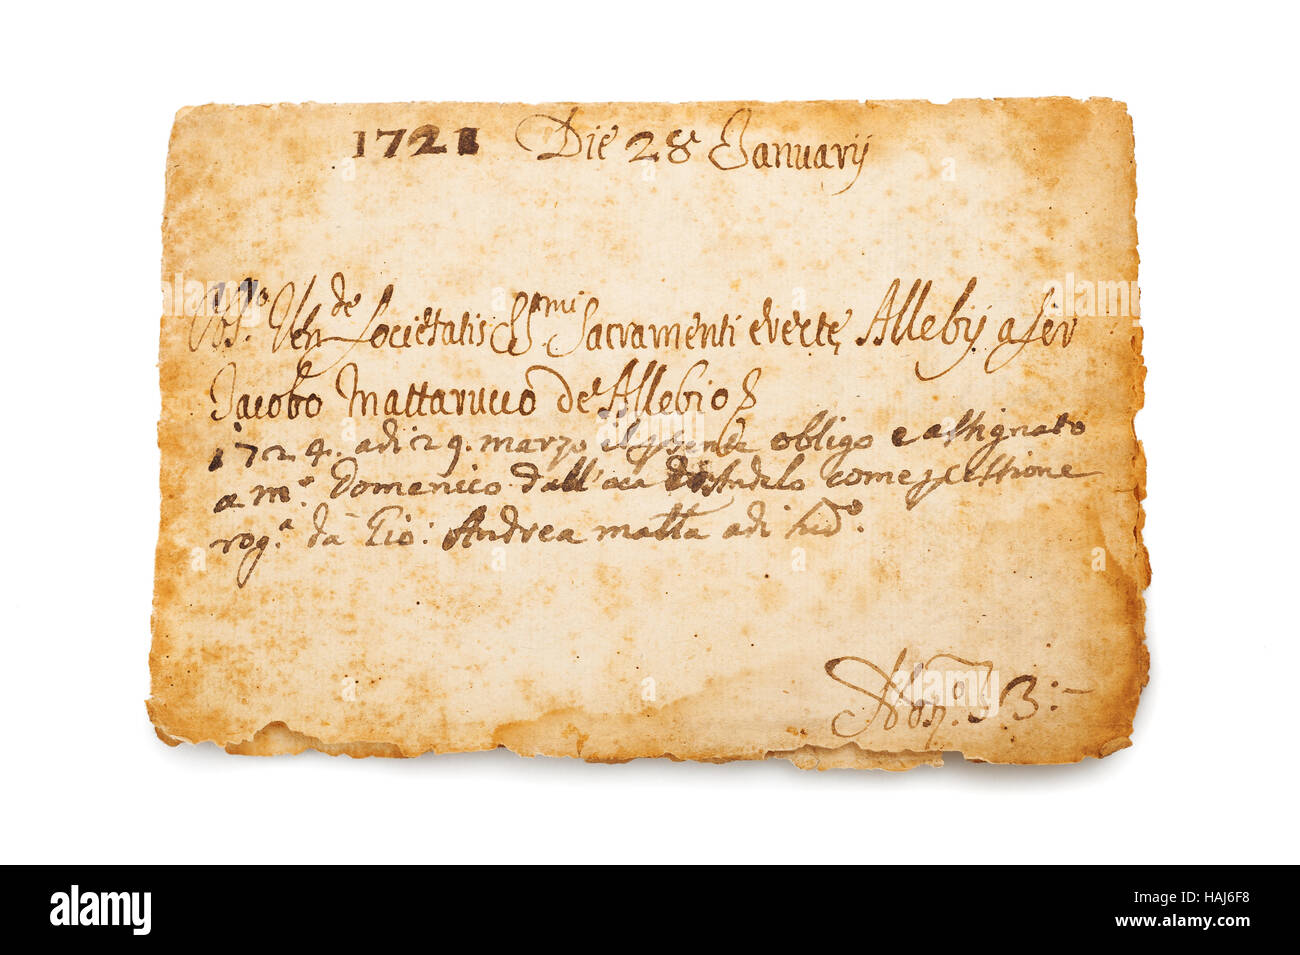 1721 Die 28 Januarij
Obb.o Ven.de Societatis SS.mi Sacramenti erecte Allebij a ser
Jacobo Mattarucco de Allebio
1724. adi 29. marzo il psente obligo e assignato
a m.o Domenico dall' come p cessione
rog.a da Gio: Andrea matta adi sud.o.
N.o 13:-
alamy
Image ID: HAJ6F8
www.alamy.com